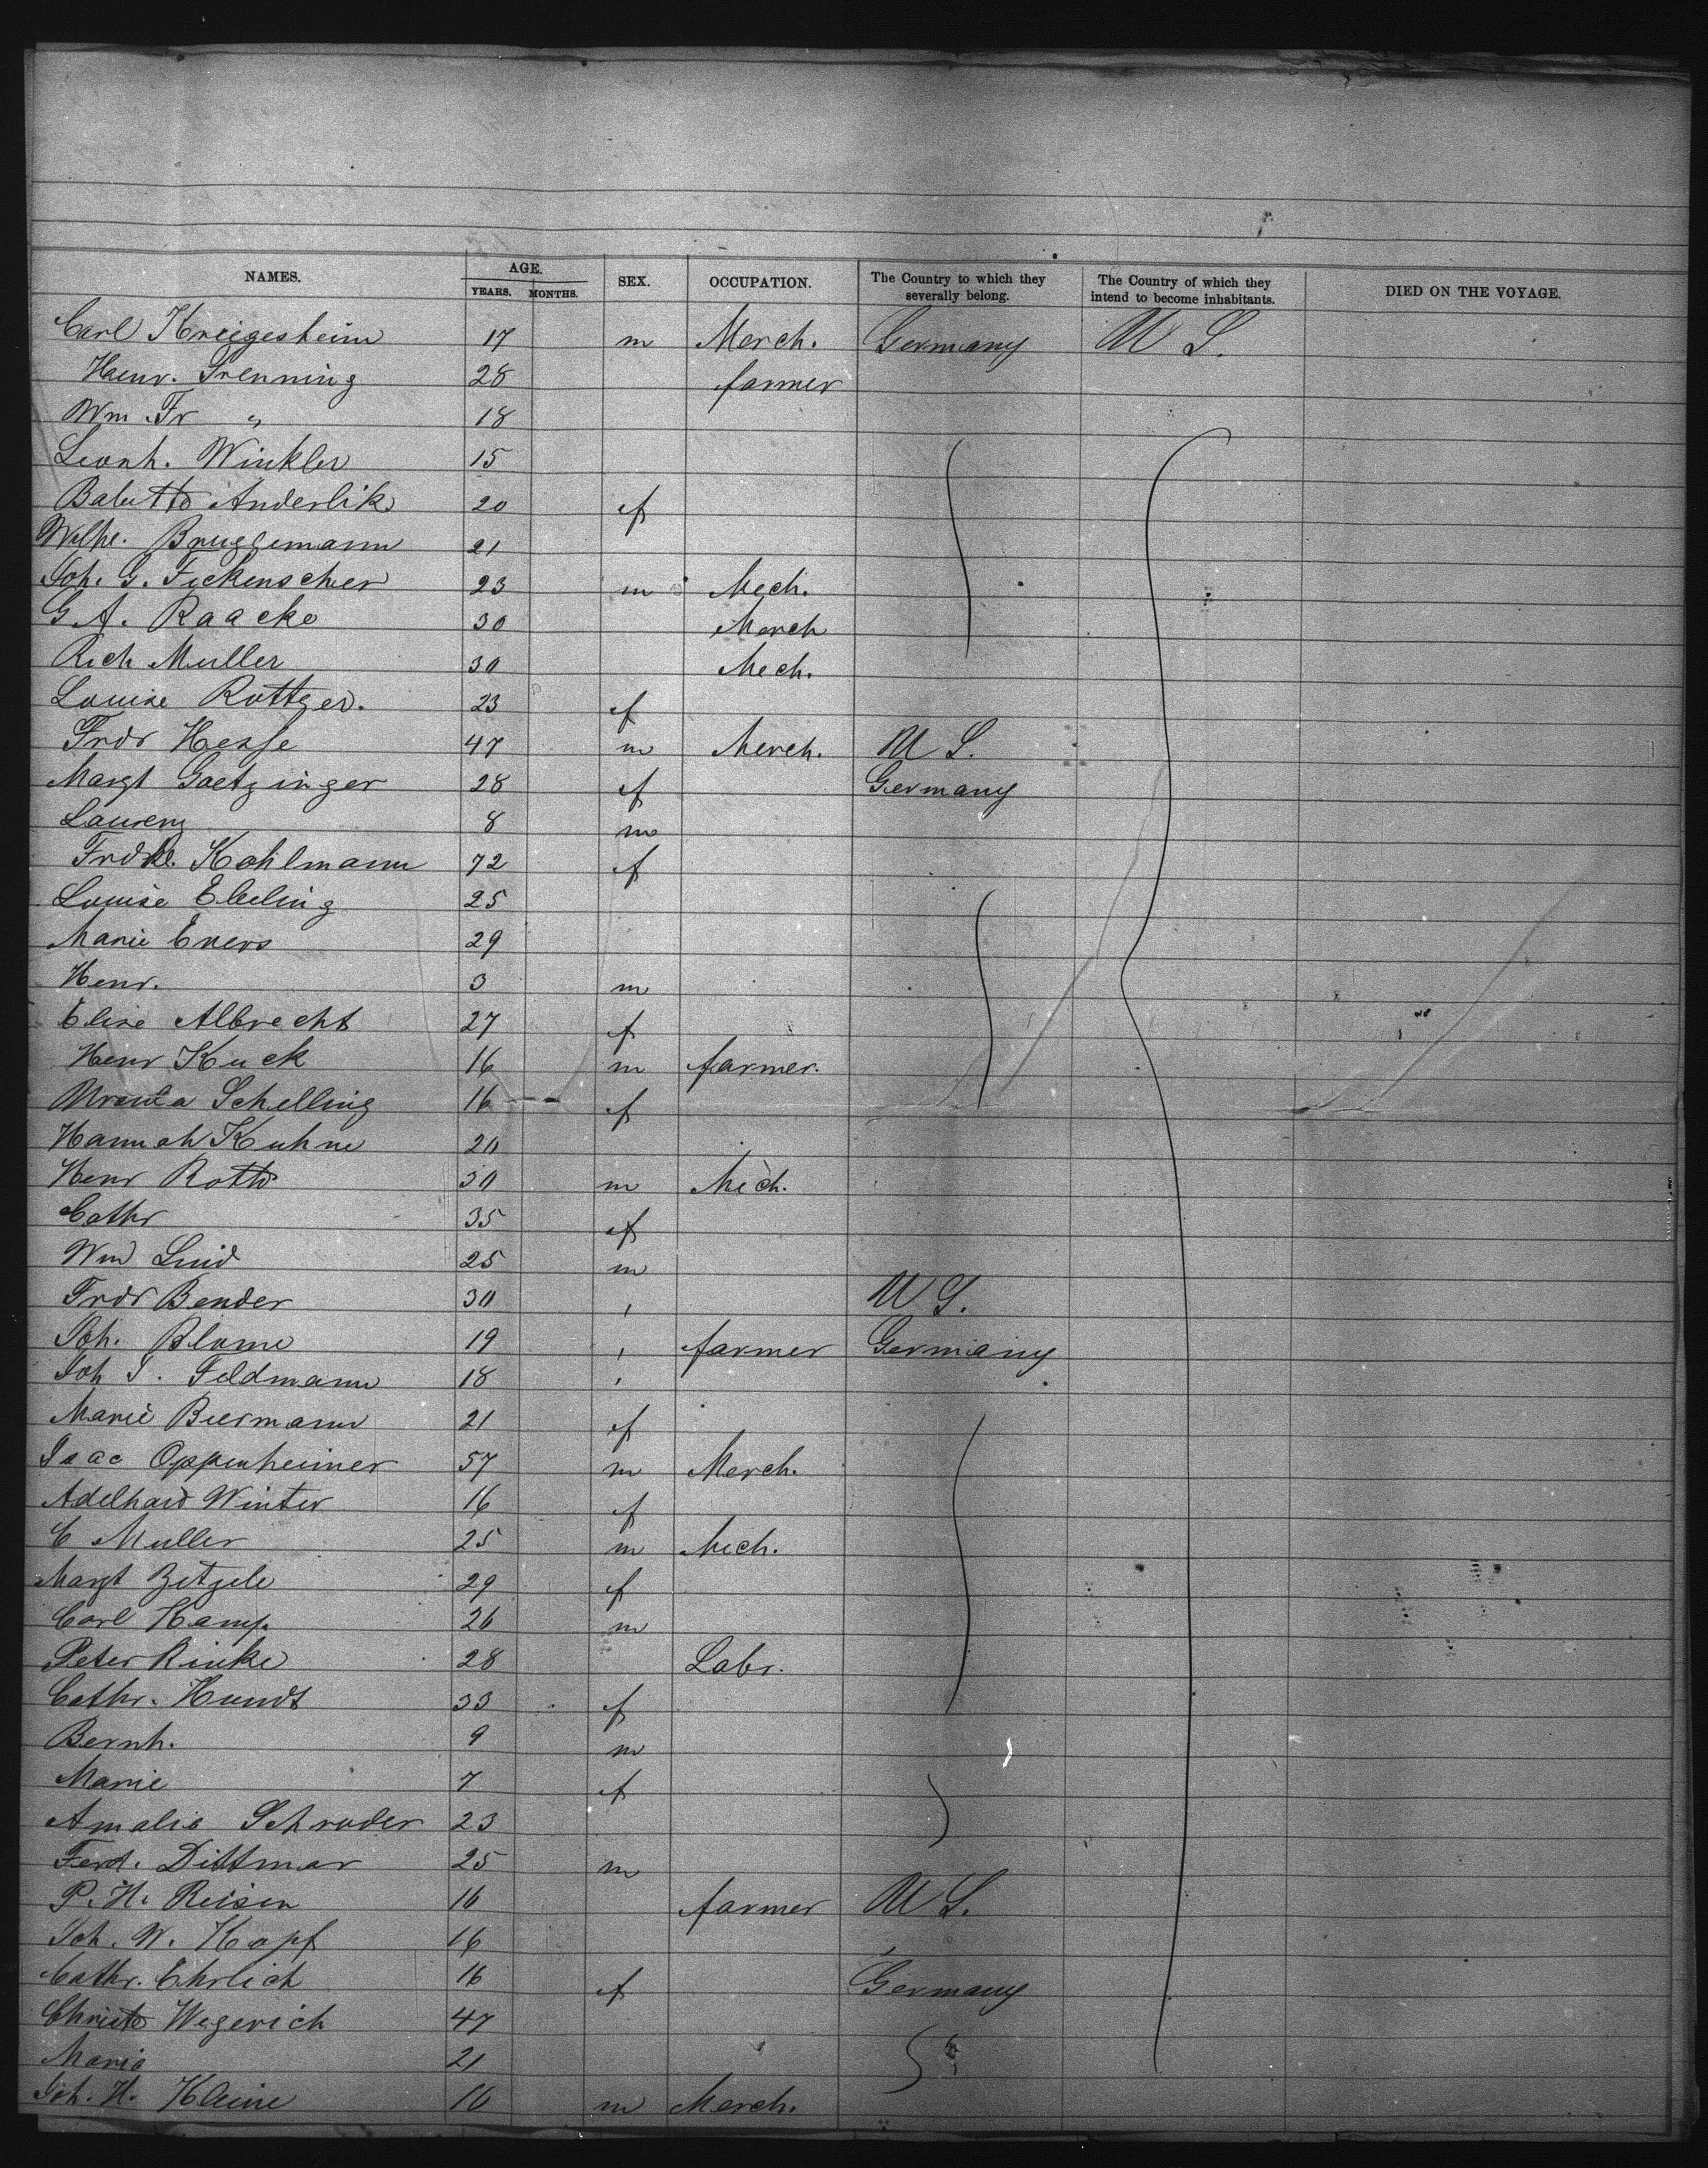 NAMES. AGE. YEARS. MONTHS. SEX. OCCUPATION. The Country to which they severally belong. The Country of which they intend to become inhabitants. DIED ON THE VOYAGE.
Carl Kreigesheim 17 m Merch. Germany U S.
Henr. Grenning 28 farmer
Wm Fr " 18
Leonh. Winkler 15
Babette Anderlik 20 f
Wilhe. Bruggemann 21
Joh. G. Fickenscher 23 m Mech.
G A. Raacke 30 Merch
Rich Muller 30 Mech.
Louise Rottger. 23 f
Frdr Hesse 47 m Merch. U S.
Margt Goetzinger 28 f Germany
Laurenz 8 m
Frdke. Kohlmann 72 f
Louise Ebeling 25
Marie Evers 29
Henr. 3 m
Elise Albrecht 27 f
Henr Kuck 16 m farmer.
Schelling 16 f
Hannah Kuhne 20
Henr Roth 30 m Mech.
Cathr 35 f
Wm 25 m
Frdr Bender 30 , U S.
Joh. Blome 19 , farmer Germany
Joh J. Feldmann 18 ,
Marie Biermann 21 f
Isaac Oppenheimer 57 m Merch.
Adelhaid Winter 16 f
C Muller 25 m Mech.
Margt Zitzele 29 f
Carl Kamp. 26 m
Peter Rinke 28 Labr.
Cathr. Hundt 33 f
Bernh. 9 m
Marie 7 f
Amalie Schroder 23
Ferd. Dittmar 25 m
P. H. Reisen 16 farmer U S.
Joh. W. Kopf 16
Cathr. Ehrlich 16 f Germany
Christe Wegerich 47
Marie 21
Joh. H. Kleine 16 m Merch.